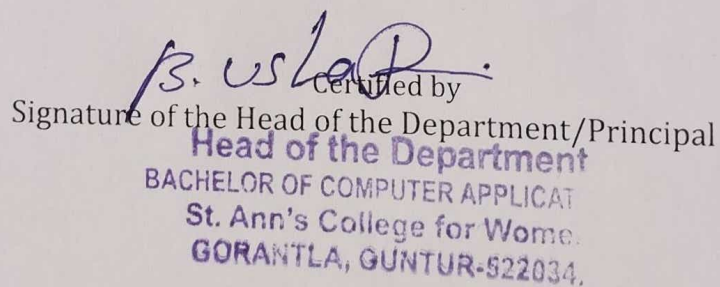 B. Usha
Certified by
Signature of the Head of the Department/Principal
Head of the Department
BACHELOR OF COMPUTER APPLICAT
St. Ann's College for Wome.
GORANTLA, GUNTUR-522034.